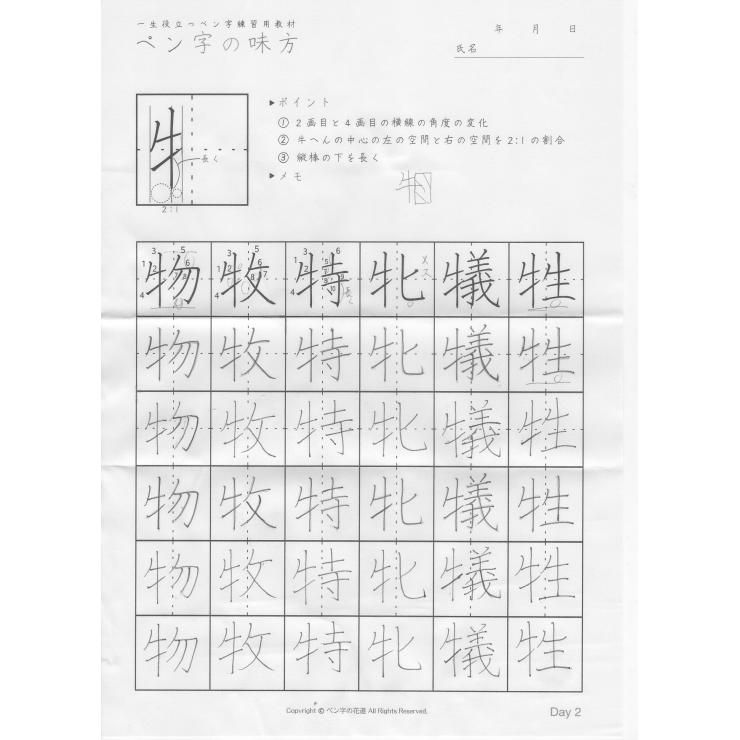 一生役立つペン字練習用教材
ペン字の味方
年 月 日
氏名
牛
長く
2:1
▶ポイント
① 2画目と4画目の横線の角度の変化
② 牛へんの中心の左の空間と右の空間を2:1の割合
③ 縦棒の下を長く
▶メモ
物 牧 特 牝 犠 牲
メス
長く
物 牧 特 牝 犠 牲
物 牧 特 牝 犠 牲
物 牧 特 牝 犠 牲
物 牧 特 牝 犠 牲
物 牧 特 牝 犠 牲
Copyright © ペン字の花道 All Rights Reserved.
Day 2